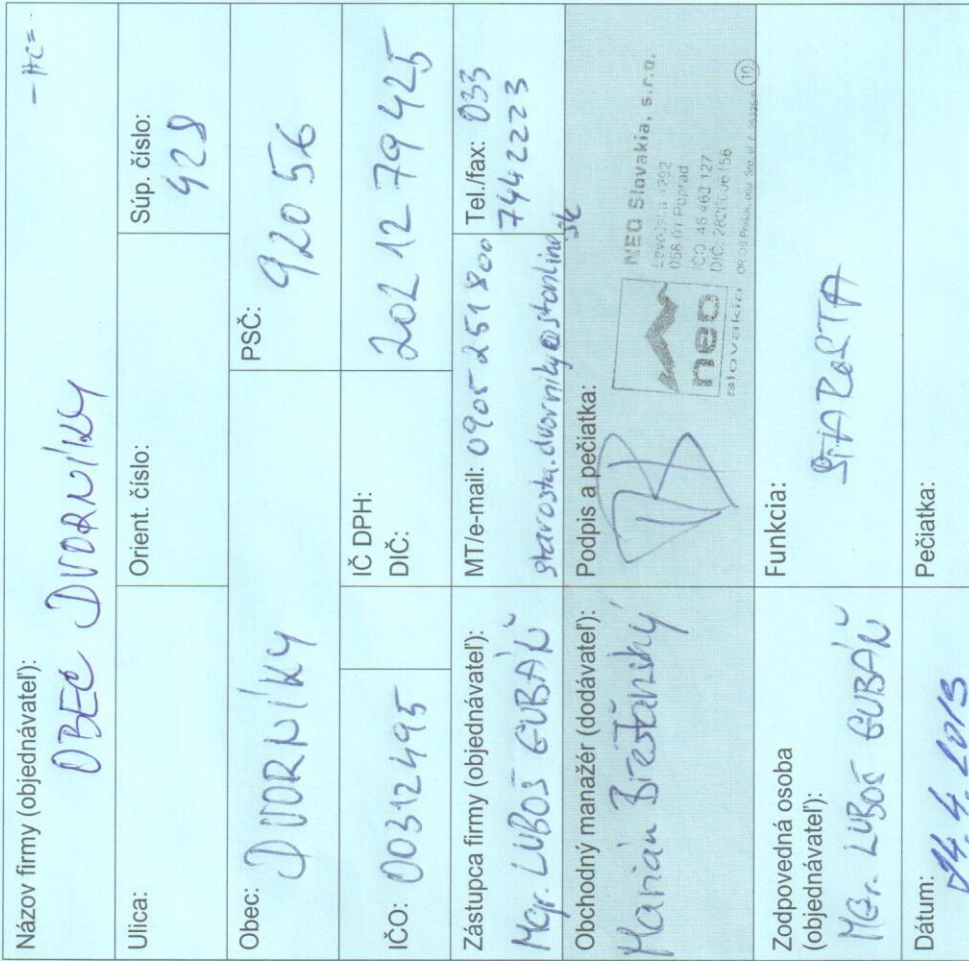 Názov firmy (objednávateľ):
OBEC DVORNÍKY
Ulica:
Orient. číslo:
Súp. číslo:
428
Obec: DVORNÍKY
PSČ: 920 56
IČO: 00312495
IČ DPH:
DIČ:
202 12 79 425
Zástupca firmy (objednávateľ):
Mgr. ĽUBOŠ GUBÁŇ
MT/e-mail: 0905 251 800
starosta.dvorniky@stonline.sk
Tel./fax: 033
744 2223
Obchodný manažér (dodávateľ):
Marián Brešťanský
Podpis a pečiatka:
neo
slovakia
NEO Slovakia, s.r.o.
058 01 Poprad
IČO: 46 463 127
10
Zodpovedná osoba
(objednávateľ):
Mgr. ĽUBOŠ GUBÁŇ
Funkcia:
STAROSTA
Dátum:
Pečiatka: